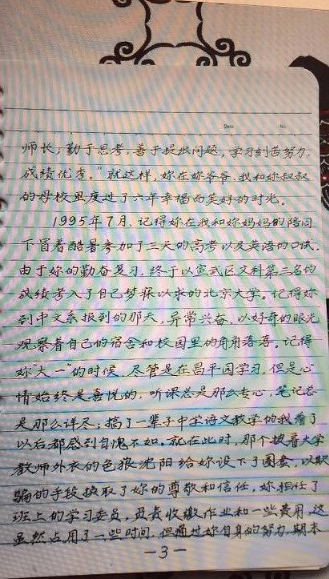 师长，勤于思考，善于提出问题，学习刻苦努力，
成绩优秀。就这样，妳在妳爷爷、我和妳叔叔
的母校里度过了六年幸福而美好的时光。
1995年7月，记得妳在我和妳妈妈的陪同
下冒着酷暑参加了三天的高考以及英语的口试。
由于妳的勤奋复习，终于以宣武区文科第二名的
成绩考入了自己梦寐以求的北京大学。记得妳
到中文系报到的那天，异常兴奋，以好奇的眼光
观察着自己的宿舍和校园里的角角落落。记得
妳"大一"的时候，尽管是在昌平园学习，但是心
情始终是喜悦的，听课总是那么专心，笔记总
是那么详尽，搞了一辈子中学语文教学的我看了
以后都感到自愧不如。就在此时，那个披着大学
教师外衣的色狼沈阳给妳设下了圈套，以欺
骗的手段换取了妳的尊敬和信任。妳担任了
班上的学习委员，负责收缴作业和一些费用，这
虽然占用了一些时间，但通过妳自身的努力，期末
—3—